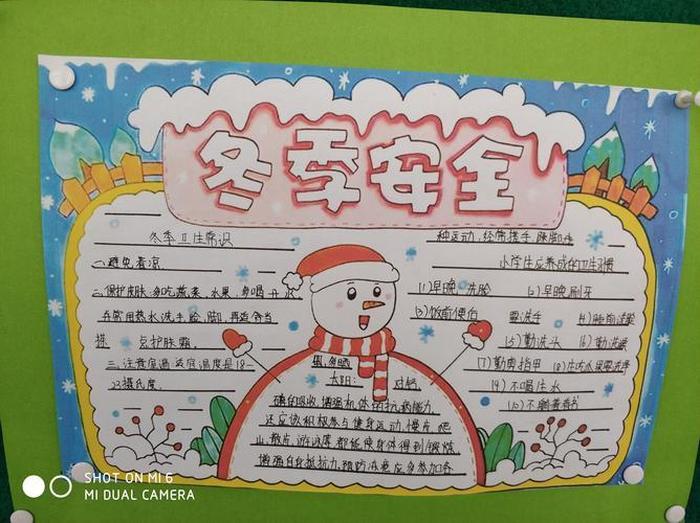 冬季安全
冬季卫生常识
一、避免着凉
二、保护皮肤:多吃蔬菜、水果,多喝开水
在常用热水洗手、脸、脚,再适当
搽
护肤霜。
三、注意室温:适度温度是18-
23摄氏度。
晒太阳:对钙、
磷的吸收,增强机体的抗病能力。
还应该积极参与健身运动,慢跑、爬
山、散步、游泳等都能使身体得到锻炼
增强自身抵抗力,预防
应多参加各
种运动,经常搓手
小学生应养成的卫生习惯
(1)早晚洗脸
(2)早晚刷牙
(3)饭前便后
要洗手
(4)睡前洗脚
(5)勤洗头
(6)勤洗澡
(7)勤剪指甲
(8)生吃水果要洗手
(9)不喝生水
(10)不躺着看书
SHOT ON MI 6
MI DUAL CAMERA